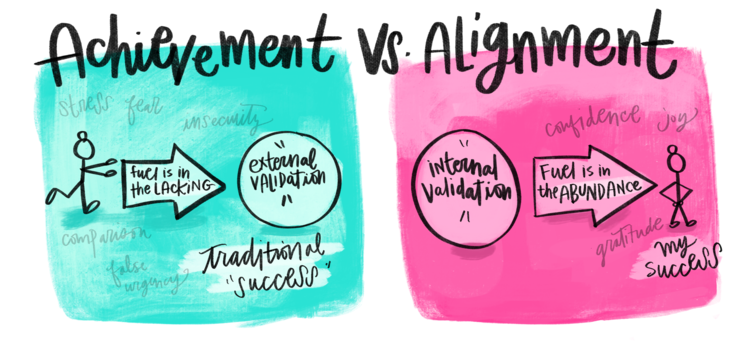 Achievement vs. Alignment
stress fear
insecurity
fuel is in
the LACKING
external
VALIDATION
comparison
false
urgency
traditional
"success"
confidence joy
internal
validation
Fuel is in
the ABUNDANCE
gratitude
my
success